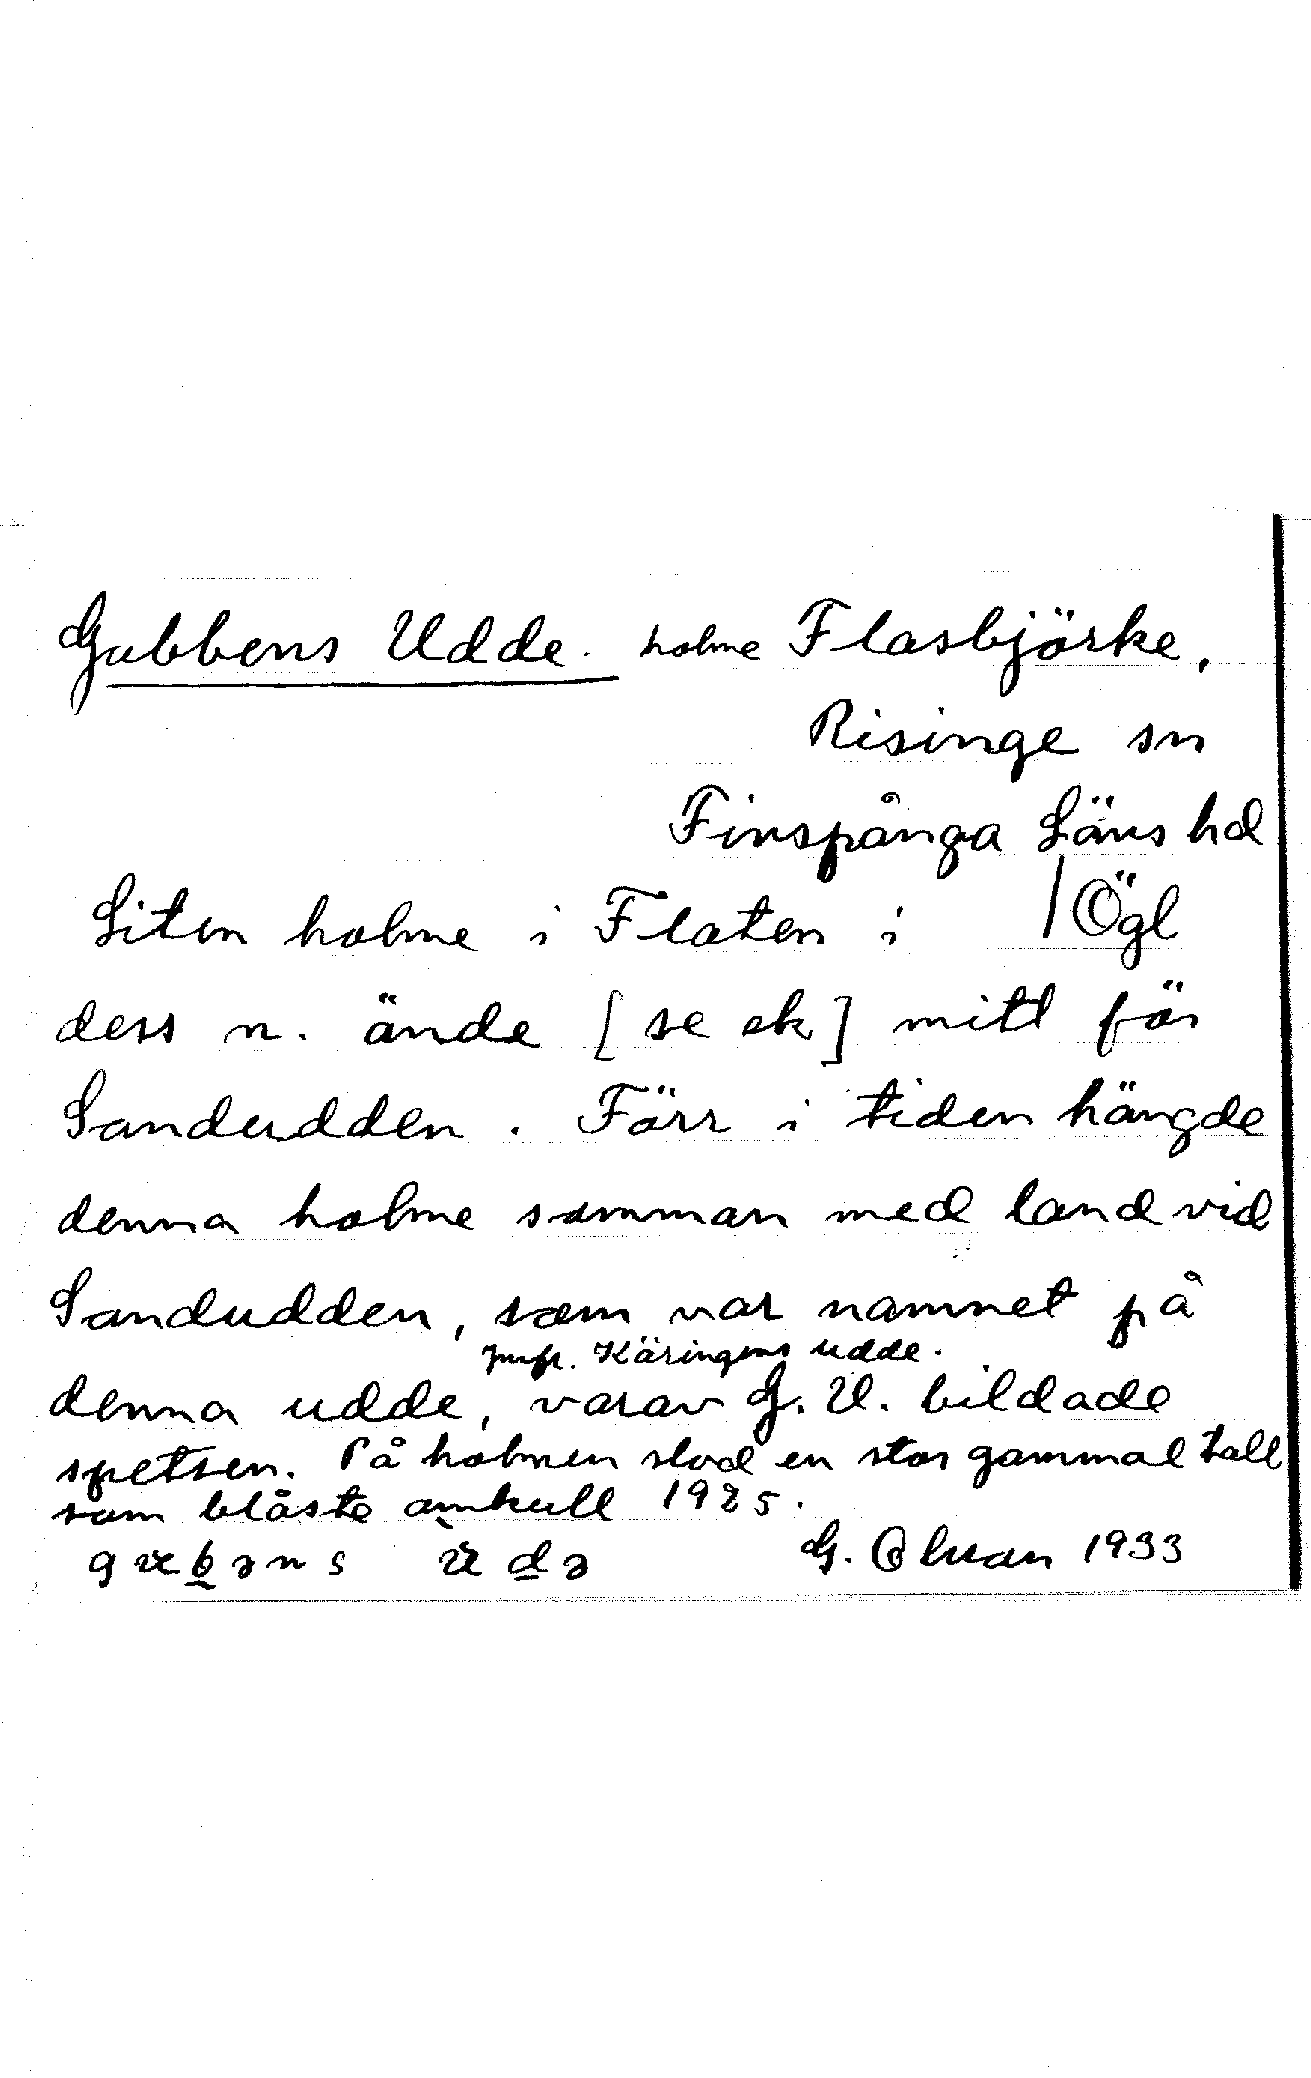 Gubbens Udde. holme Flasbjörke,
Risinge sn
Finspånga Läns hd
Liten holme i Flaten i / Ögl
dess n. ände [se ek] mitt för
Sandudden. Förr i tiden hängde
denna holme samman med land vid
Sandudden, som var namnet på
jmfr. Käringens udde.
denna udde, varav G. U. bildade
spetsen. På holmen stod en stor gammal tall
som blåste omkull 1925.
G. Olsson 1933